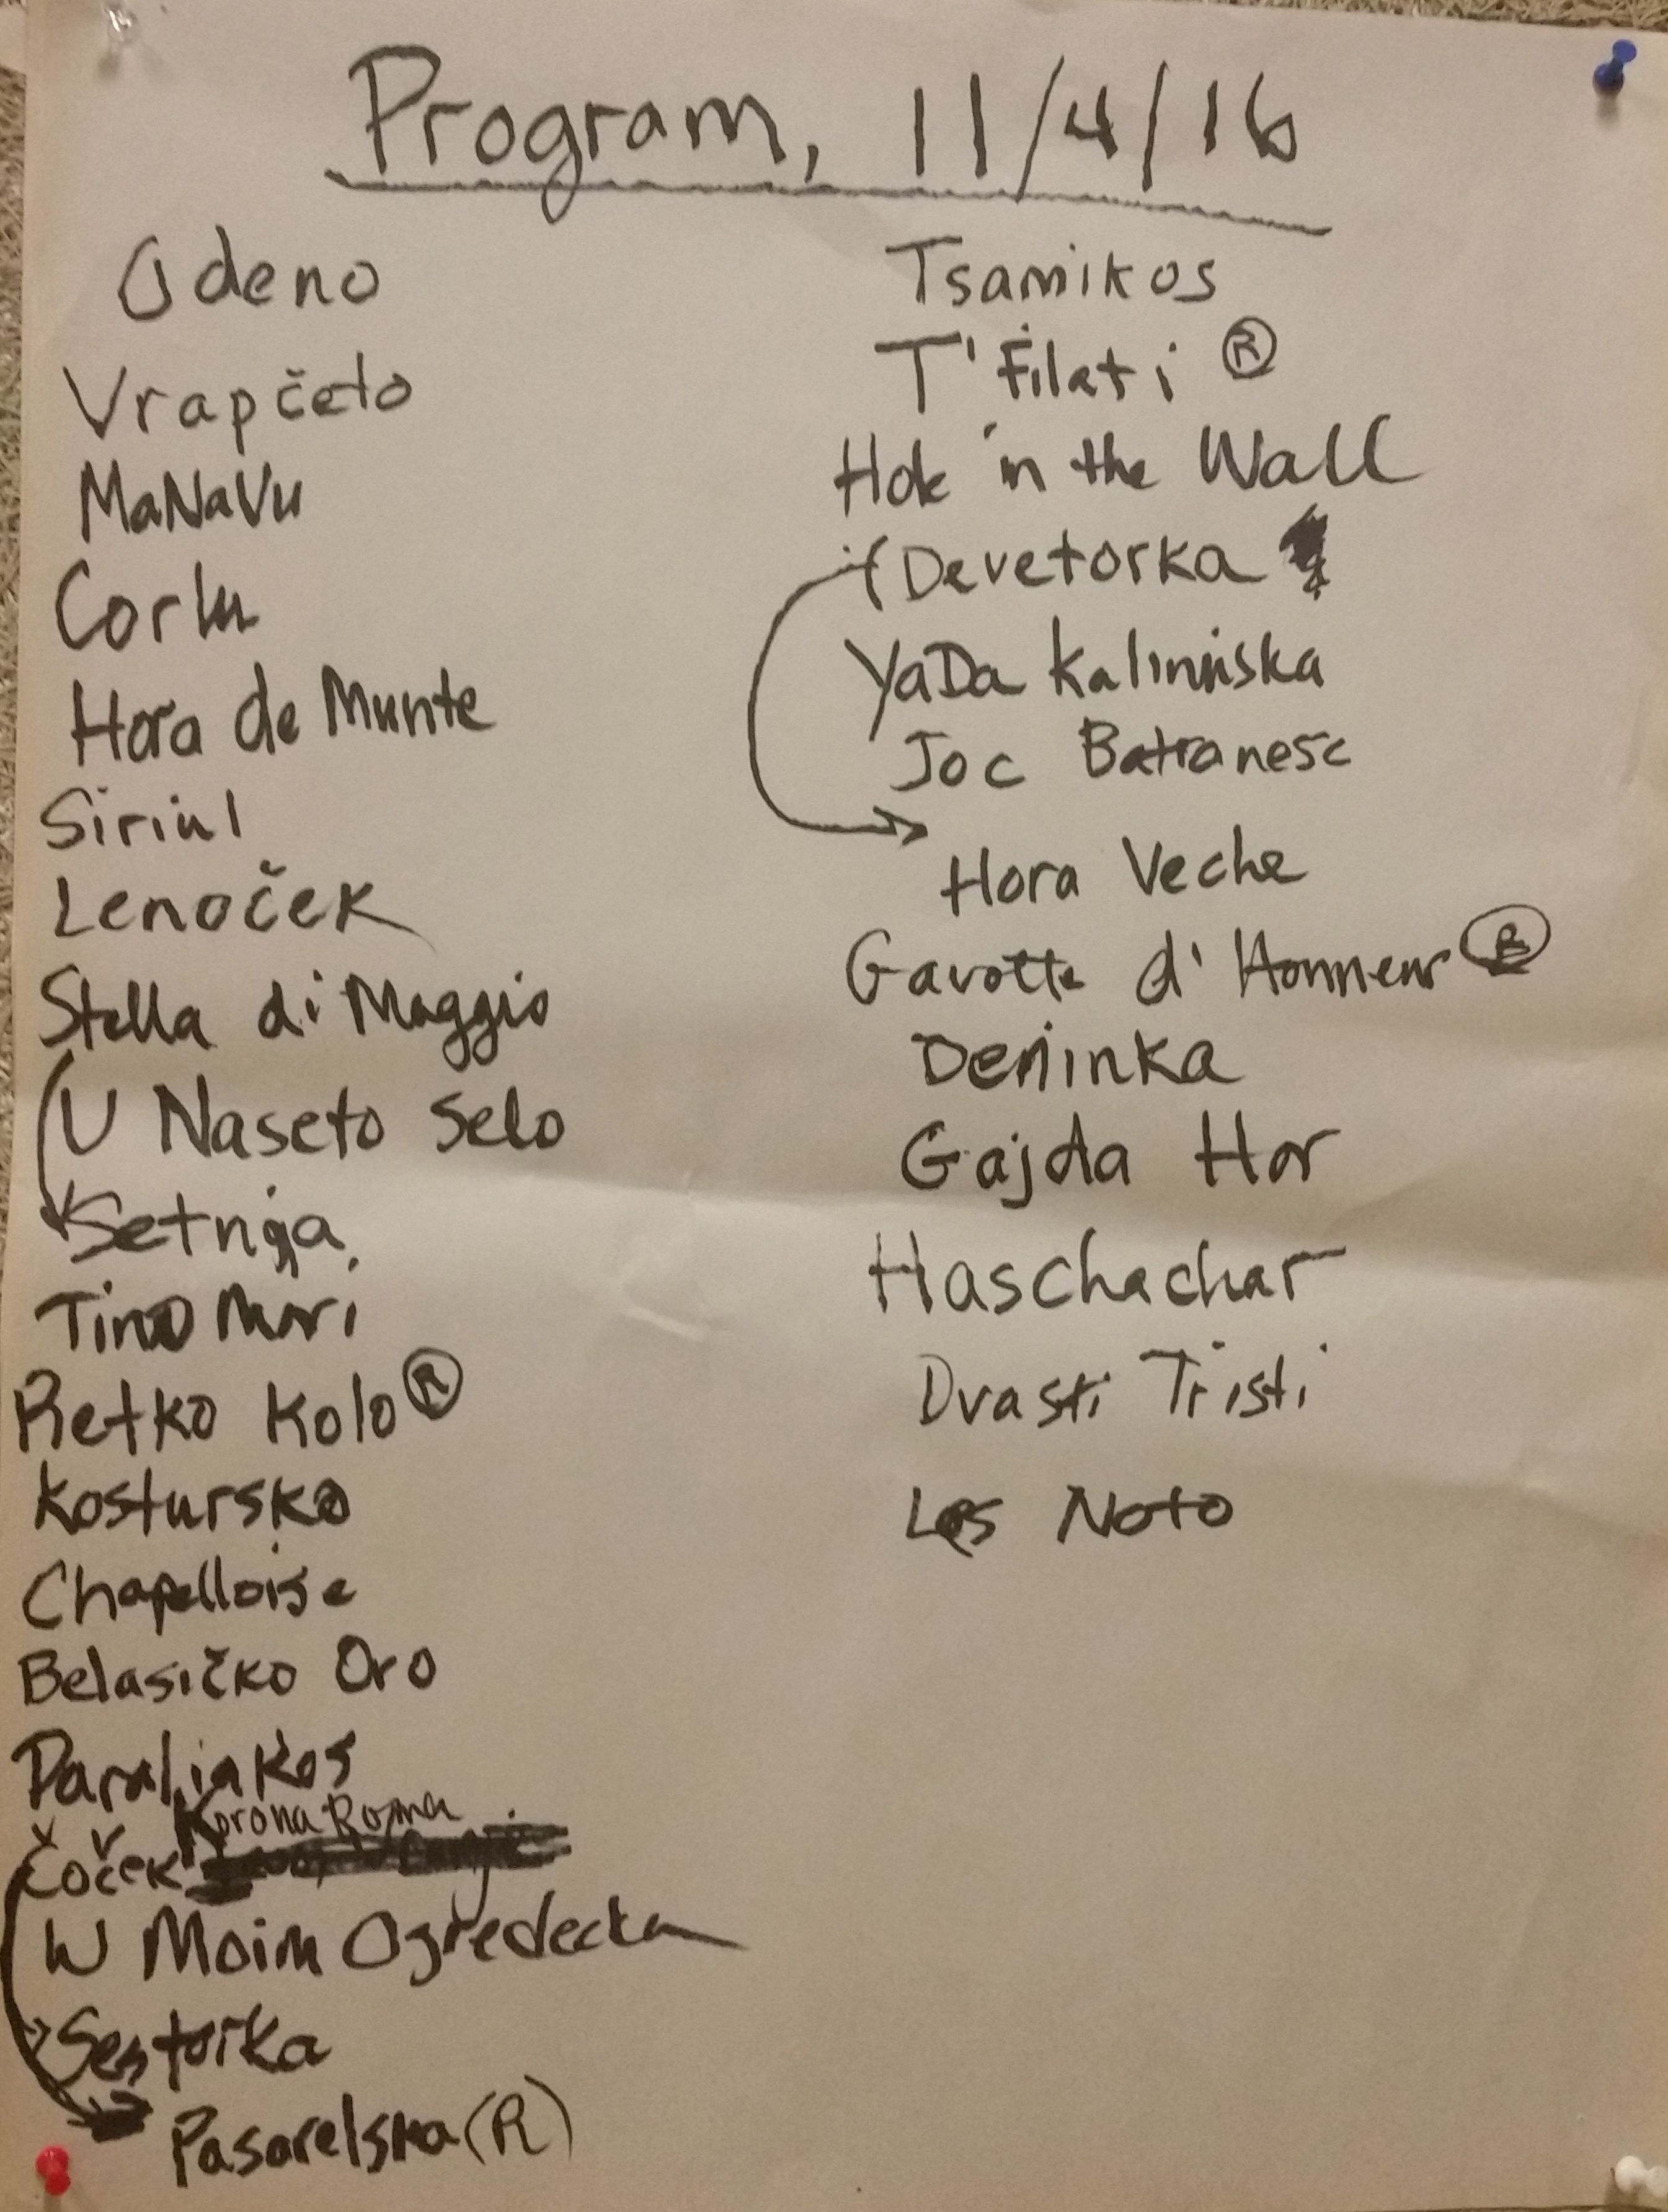 Program, 11/4/16
Odeno
Vrapčeto
MaNaVu
Corlu
Hora de Munte
Siriul
Lenoček
Stella di Maggio
U Naseto Selo
Setnja
Tino Mori
Retko Kolo Ⓡ
Kostursko
Chapelloise
Belasičko Oro
Paraliakos
Korona Roma
Čoček
W Moim Ogredecka
Sestorka
Pasarelska (R)
Tsamikos
T'filati Ⓡ
Hole in the Wall
Devetorka
YaDa Kalinniska
Joc Batranesc
Hora Veche
Gavotte d'Honneur Ⓡ
Deninka
Gajda Hor
Haschachar
Dvasti Tristi
Los Noto